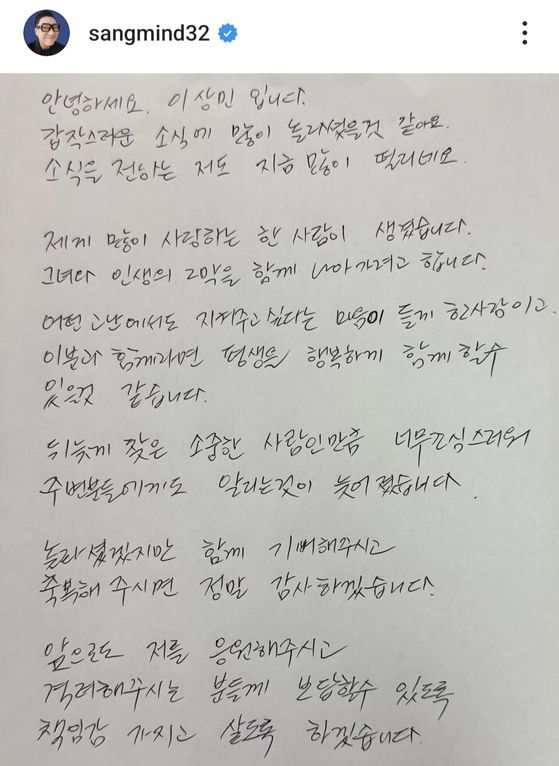 sangmind32
안녕하세요. 이상민 입니다.
갑작스러운 소식에 많이 놀라셨을것 같아요.
소식을 전하는 저도 지금 많이 떨리네요.
제게 많이 사랑하는 한 사람이 생겼습니다.
그녀와 인생의 2막을 함께 나아가려고 합니다.
어떤 고난에서도 지켜주고 싶다는 마음이 들게 한사람이고.
이분과 함께라면 평생을 행복하게 함께 할수
있을것 같습니다.
뒤늦게 찾은 소중한 사람인만큼 너무조심스러워
주변분들에게도 알리는것이 늦어졌습니다.
놀라셨겠지만 함께 기뻐해주시고
축복해 주시면 정말 감사하겠습니다.
앞으로도 저를 응원해주시고
격려해주시는 분들께 보답할수 있도록
책임감 가지고 살도록 하겠습니다.